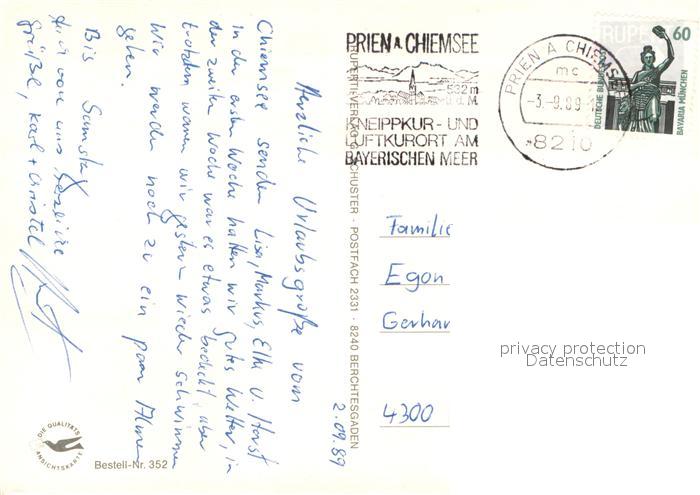 PRIEN A. CHIEMSEE
532 m
ü. d. M.
KNEIPPKUR - UND
LUFTKURORT AM
BAYERISCHEN MEER
PRIEN A CHIEMSEE
mc
-3.-9.89-
8210
60
DEUTSCHE BUNDESPOST
BAYARIA MÜNCHEN
Herzliche Urlaubsgrüße vom
Chiemsee senden Lisa, Markus, Elke u. Horst
in der ersten Woche hatten wir gutes Wetter, in
der zweiten Woche war es etwas bedeckt, aber
trotzdem waren wir gestern wieder schwimmen
Wir werden noch zu ein paar Almen
gehen.
Bis Samstag
Auch von uns herzliche
Grüße, Karl + Christel
2.09.89
RUPERTI-VERLAG SCHUSTER · POSTFACH 2331 · 8240 BERCHTESGADEN
Familie
Egon
Gerhar
4300
privacy protection
Datenschutz
DIE QUALITÄTS
ANSICHTSKARTE
Bestell-Nr. 352